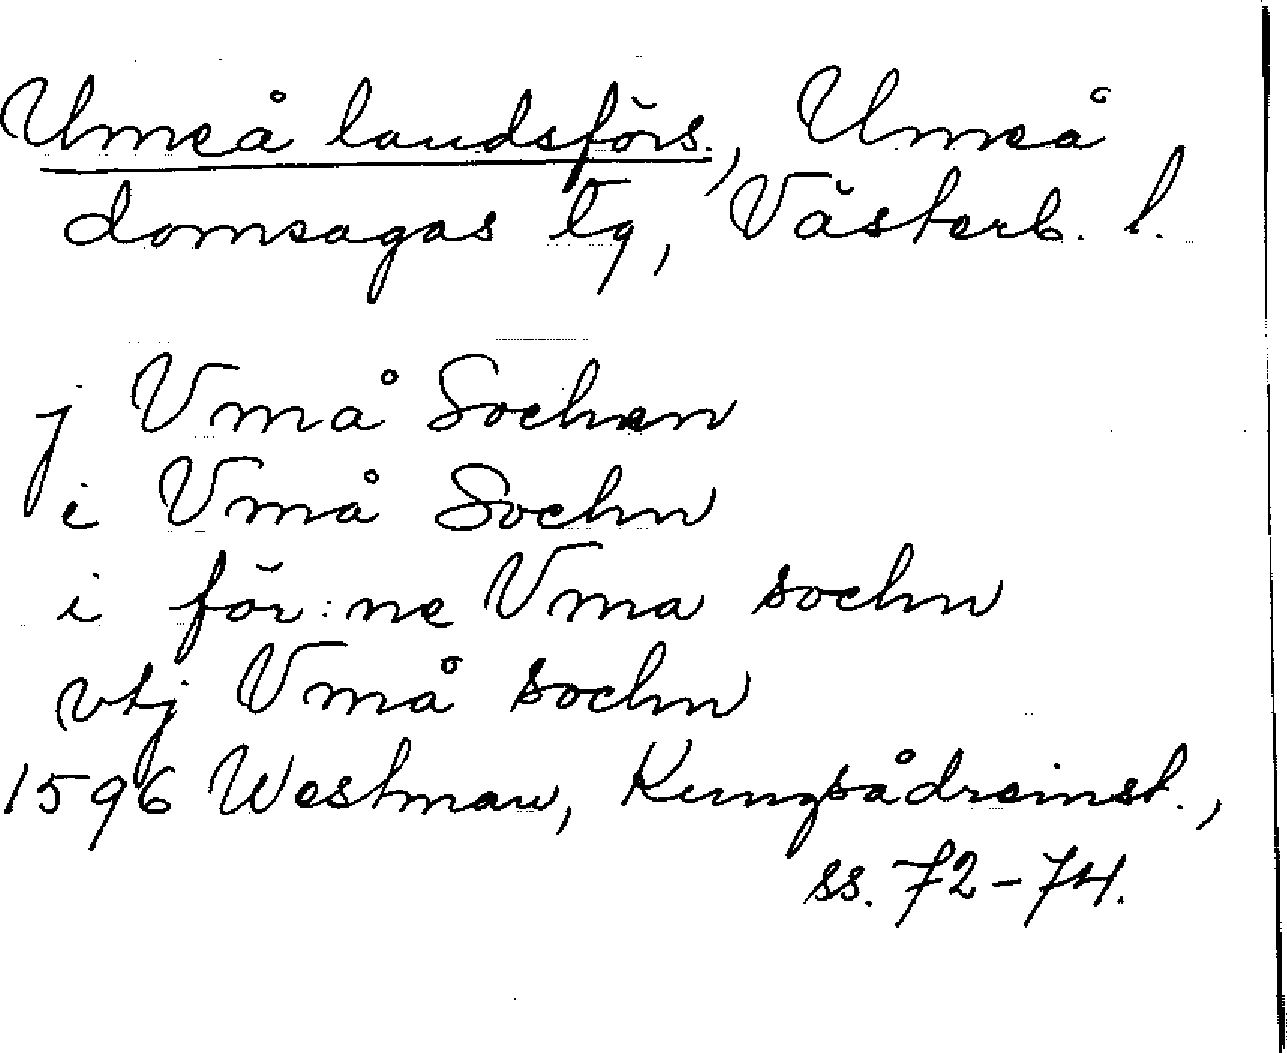 Umeå landsförs., Umeå
domsagas tg, Västerb. l.
j Vmå Sochen
i Vmå Sochn
i för:ne Vma sochn
vtj Vmå sochn
1596 Westman, Kungsådreinst.,
ss. 72-74.